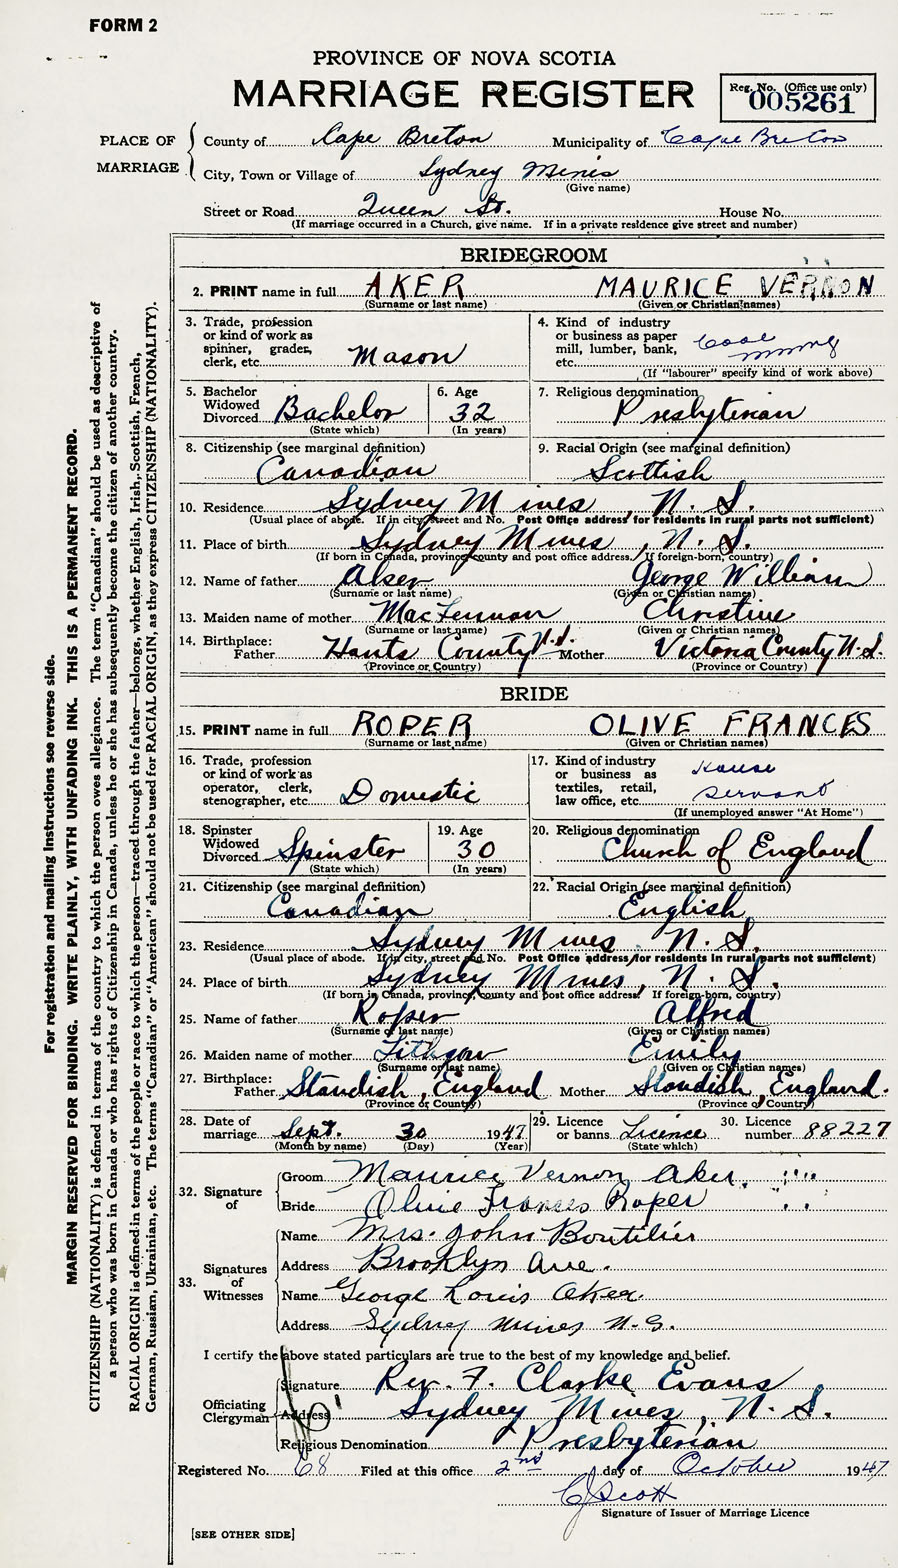 FORM 2
PROVINCE OF NOVA SCOTIA
MARRIAGE REGISTER
Reg. No. (Office use only)
005261
PLACE OF MARRIAGE
County of Cape Breton Municipality of Cape Breton
City, Town or Village of Sydney Mines
(Give name)
Street or Road Queen St. House No.
(If marriage occurred in a Church, give name. If in a private residence give street and number)
BRIDEGROOM
2. PRINT name in full AKER MAURICE VERNON
(Surname or last name) (Given or Christian names)
3. Trade, profession or kind of work as spinner, grader, clerk, etc. Mason
4. Kind of industry or business as paper mill, lumber, bank, etc. Coal Mining
(If "labourer" specify kind of work above)
5. Bachelor Widowed Divorced Bachelor
(State which)
6. Age 32
(In years)
7. Religious denomination Presbyterian
8. Citizenship (see marginal definition) Canadian
9. Racial Origin (see marginal definition) Scottish
10. Residence Sydney Mines, N. S.
(Usual place of abode. If in city, street and No. Post Office address for residents in rural parts not sufficient)
11. Place of birth Sydney Mines, N. S.
(If born in Canada, province, county and post office address. If foreign-born, country)
12. Name of father Aker George William
(Surname or last name) (Given or Christian names)
13. Maiden name of mother MacLennan Christine
(Surname or last name) (Given or Christian names)
14. Birthplace: Father Hants County N.S. Mother Victoria County N.S.
(Province or Country) (Province or Country)
BRIDE
15. PRINT name in full ROPER OLIVE FRANCES
(Surname or last name) (Given or Christian names)
16. Trade, profession or kind of work as operator, clerk, stenographer, etc. Domestic
17. Kind of industry or business as textiles, retail, law office, etc. House Servant
(If unemployed answer "At Home")
18. Spinster Widowed Divorced Spinster
(State which)
19. Age 30
(In years)
20. Religious denomination Church of England
21. Citizenship (see marginal definition) Canadian
22. Racial Origin (see marginal definition) English
23. Residence Sydney Mines, N. S.
(Usual place of abode. If in city, street and No. Post Office address for residents in rural parts not sufficient)
24. Place of birth Sydney Mines, N. S.
(If born in Canada, province, county and post office address. If foreign-born, country)
25. Name of father Roper Alfred
(Surname or last name) (Given or Christian names)
26. Maiden name of mother Lithgow Emily
(Surname or last name) (Given or Christian names)
27. Birthplace: Father Standish, England Mother Standish, England.
(Province or Country) (Province or Country)
28. Date of marriage Sept. 30 1947
(Month by name) (Day) (Year)
29. Licence or banns Licence
(State which)
30. Licence number 88227
32. Signature of
Groom Maurice Vernon Aker.
Bride Olive Frances Roper
33. Signatures of Witnesses
Name Mrs. John Boutilier
Address Brooklyn Ave.
Name George Louis Aker
Address Sydney Mines N.S.
I certify the above stated particulars are true to the best of my knowledge and belief.
Officiating Clergyman
Signature Rev. F. Clarke Evans
Address Sydney Mines, N. S.
Religious Denomination Presbyterian
Registered No. 68 Filed at this office 2nd day of October 1947
C J Scott
Signature of Issuer of Marriage Licence
[SEE OTHER SIDE]
For registration and mailing instructions see reverse side.
MARGIN RESERVED FOR BINDING. WRITE PLAINLY, WITH UNFADING INK. THIS IS A PERMANENT RECORD.
CITIZENSHIP (NATIONALITY) is defined in terms of the country to which the person owes allegiance. The term "Canadian" should be used as descriptive of
a person who was born in Canada or who has rights of Citizenship in Canada, unless he or she has subsequently become the citizen of another country.
RACIAL ORIGIN is defined in terms of the people or race to which the person—traced through the father—belongs, whether English, Irish, Scottish, French,
German, Russian, Ukrainian, etc. The terms "Canadian" or "American" should not be used for RACIAL ORIGIN, as they express CITIZENSHIP (NATIONALITY).